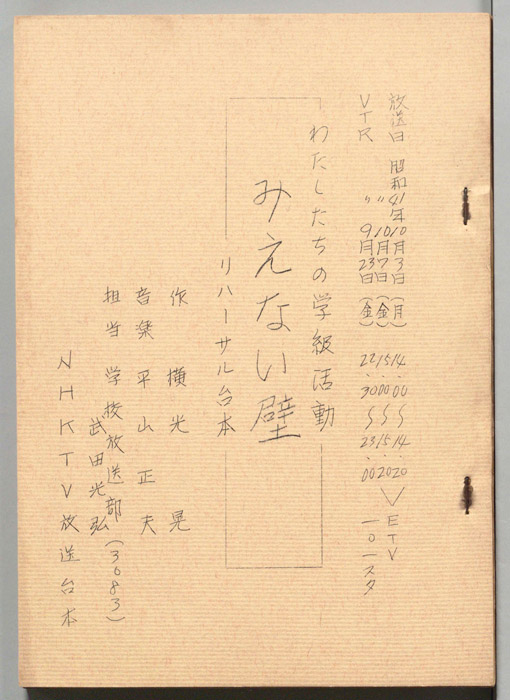 放送日 昭和41年10月3日(月) 14.00〜14.20
〃 10月7日(金) 15.00〜15.20 ETV
VTR 〃 9月23日(金) 22.30〜23.00 一〇一スタ
わたしたちの学級活動
みえない壁
リハーサル台本
作 横光 晃
音楽 平山正夫
担当 学校放送部(3083)
武田光弘
NHKTV放送台本